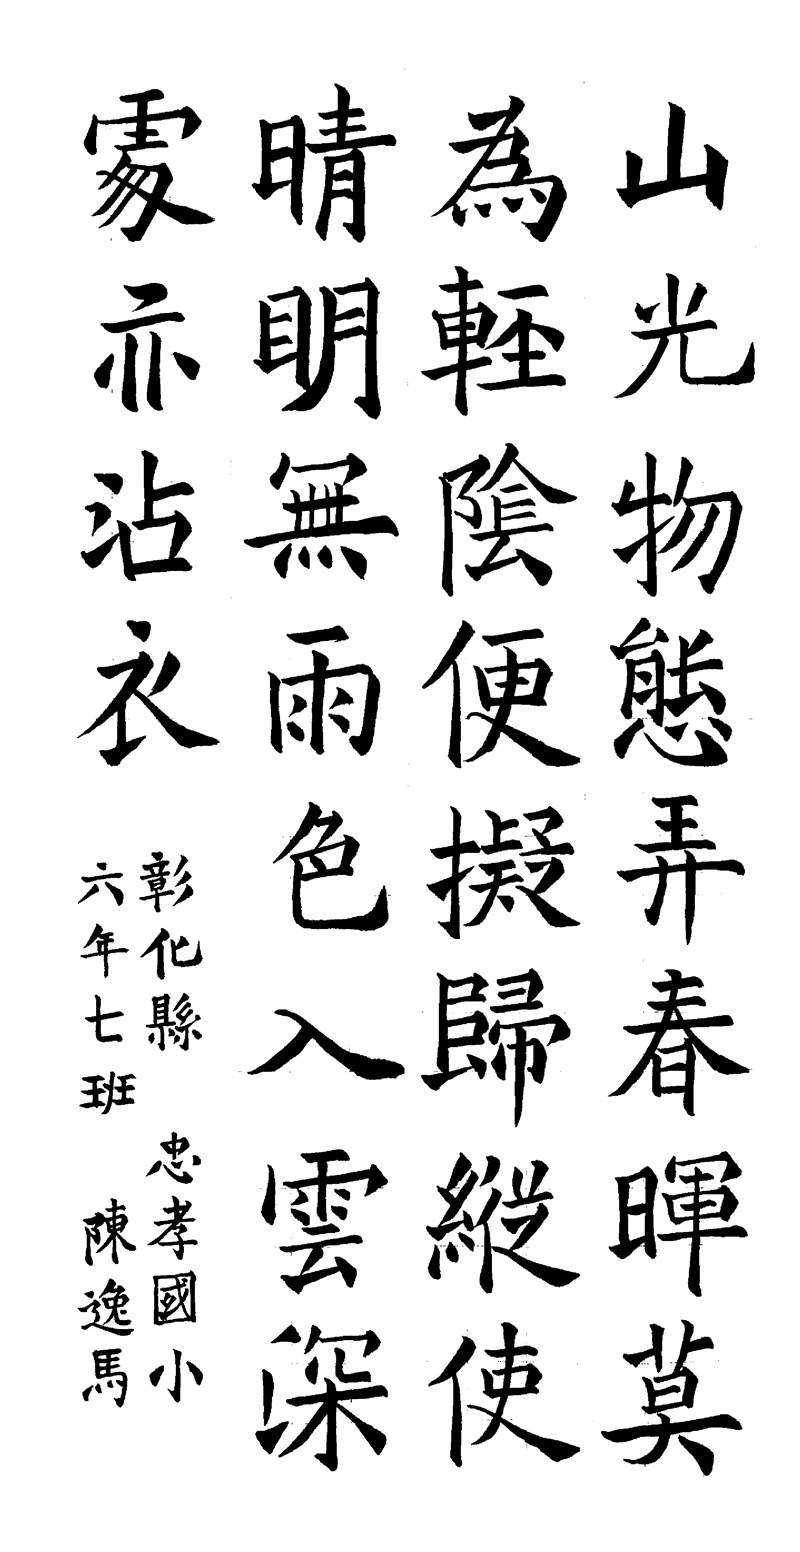 山光物態弄春暉莫
為輕陰便擬歸縱使
晴明無雨色入雲深
處亦沾衣
彰化縣 忠孝國小
六年七班 陳逸馬